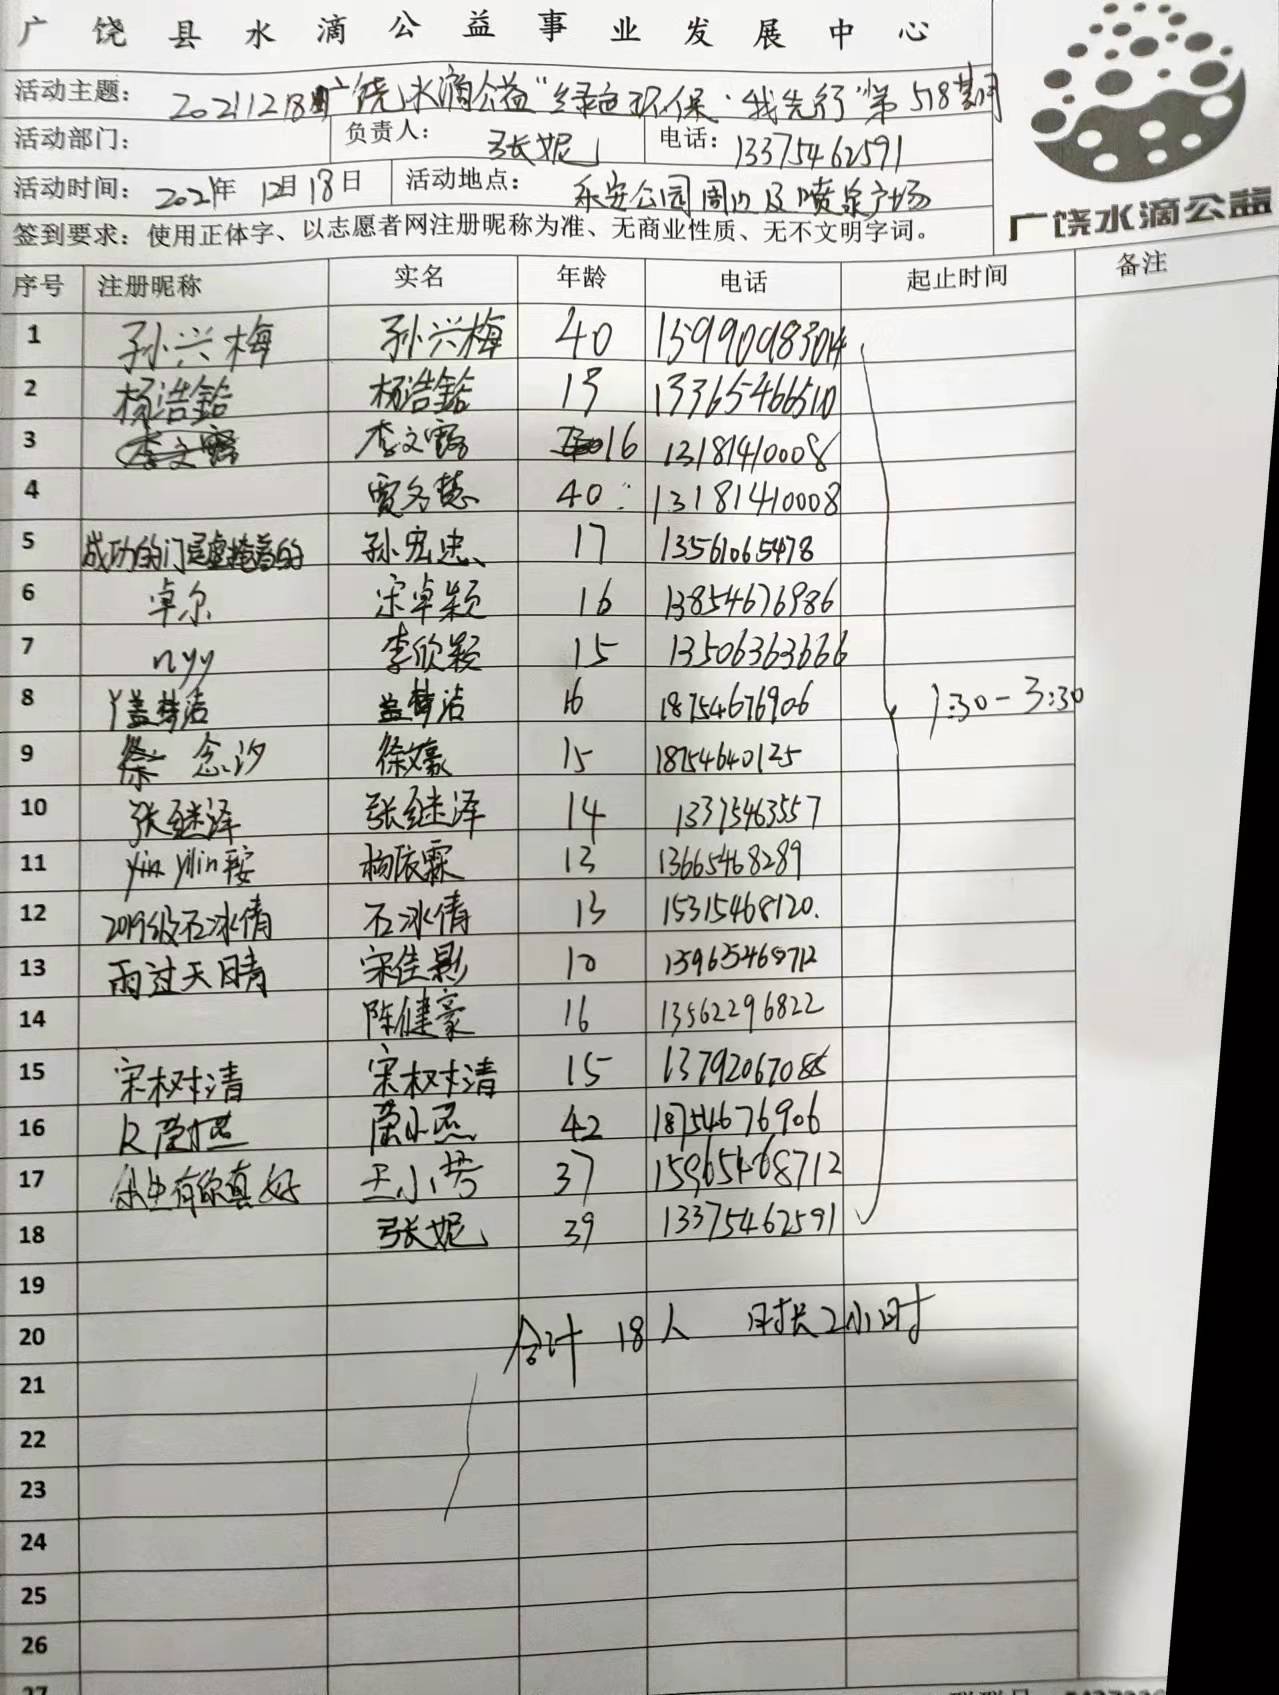 广饶县水滴公益事业发展中心
活动主题： 20211218期广饶水滴公益“绿色环保·我先行”第518期
活动部门： 负责人： 张妮 电话： 13375462591
活动时间： 2021年 12月18日 活动地点： 乐安公园周边及喷泉广场
广饶水滴公益
签到要求：使用正体字、以志愿者网注册昵称为准、无商业性质、无不文明字词。
序号 注册昵称 实名 年龄 电话 起止时间 备注
1 孙兴梅 孙兴梅 40 15990983014
2 杨浩铪 杨浩铪 13 13365466510
3 李文露 16 13181410008
4 贾名慧 40 13181410008
5 成功的门是虚掩着的 孙宏忠 17 13561065478
6 卓尔 宋卓颖 16 13854676986
7 nyy 李欣颖 15 13506363666
8 丫盖梦洁 盖梦洁 16 18754676906 1:30-3:30
9 念汐 徐嫝 15 18754640125
10 张继泽 张继泽 14 13375463557
11 yilin 杨依霖 13 13665468289
12 2019级石冰倩 石冰倩 13 15315468120.
13 雨过天晴 宋佳影 10 15965468712
14 陈健豪 16 13562296822
15 宋树清 宋树清 15 13792067086
16 42 18754676906
17 余生有你真好 王小芳 37 15965468712
18 张妮 39 13375462591
19
20 合计 18人 时长2小时
21
22
23
24
25
26
27